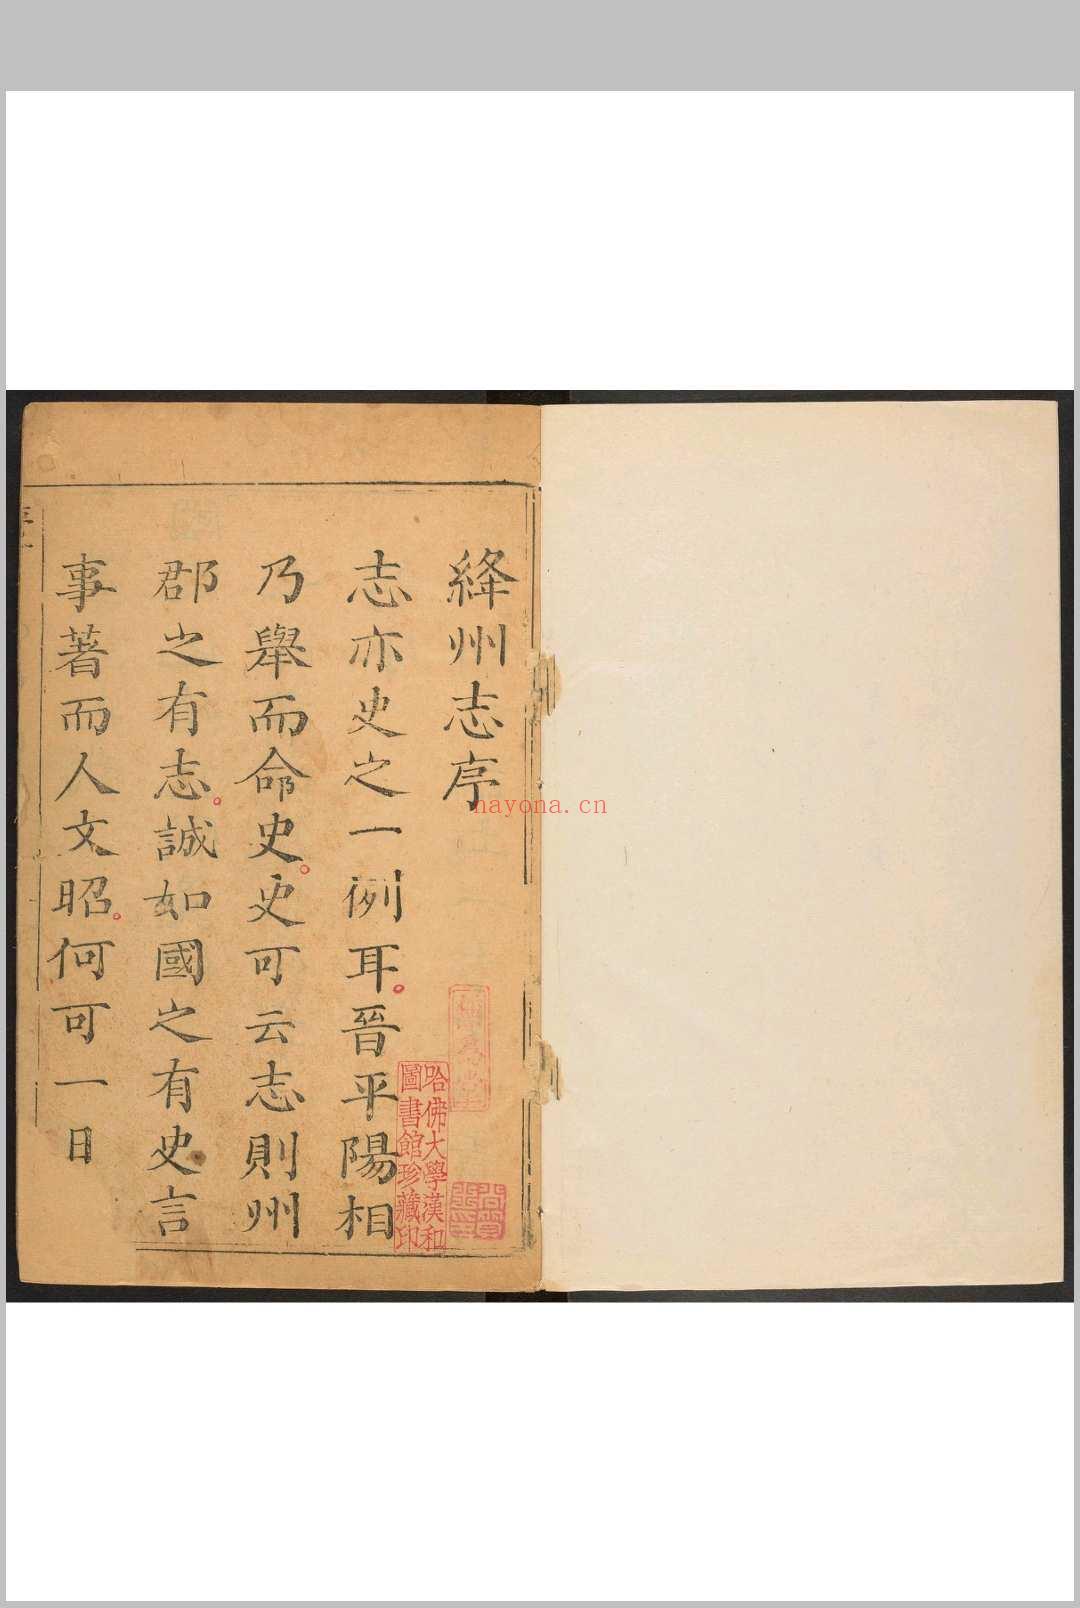 絳州志序
志亦史之一例耳晉平陽相
乃舉而命史史可云志則州
郡之有志誠如國之有史言
事著而人文昭何可一日
哈佛大學漢和
圖書館珍藏印
nayona.cn